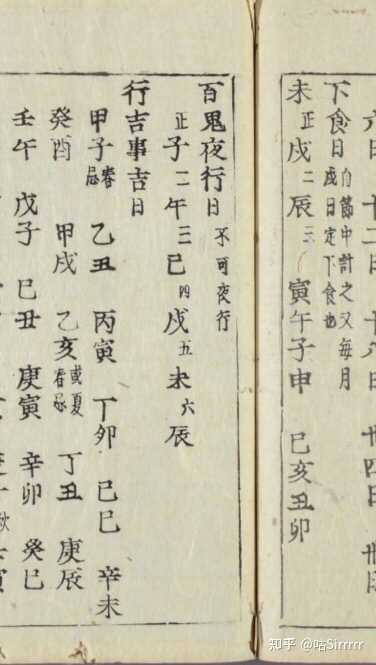 六日 十二日 十八日 廿四日 卅日
下食日 自節中計之又每月
戌日定下食也
未正戌二辰三 寅午子申 巳亥丑卯
百鬼夜行日 不可夜行
正子二午三巳四戌五未六辰
行吉事吉日
甲子春忌 乙丑 丙寅 丁卯 己巳 辛未
癸酉 甲戌 乙亥或夏春忌 丁丑 庚辰
壬午 戊子 巳丑 庚寅 辛卯 癸巳
知乎 @咕Sirrrrr